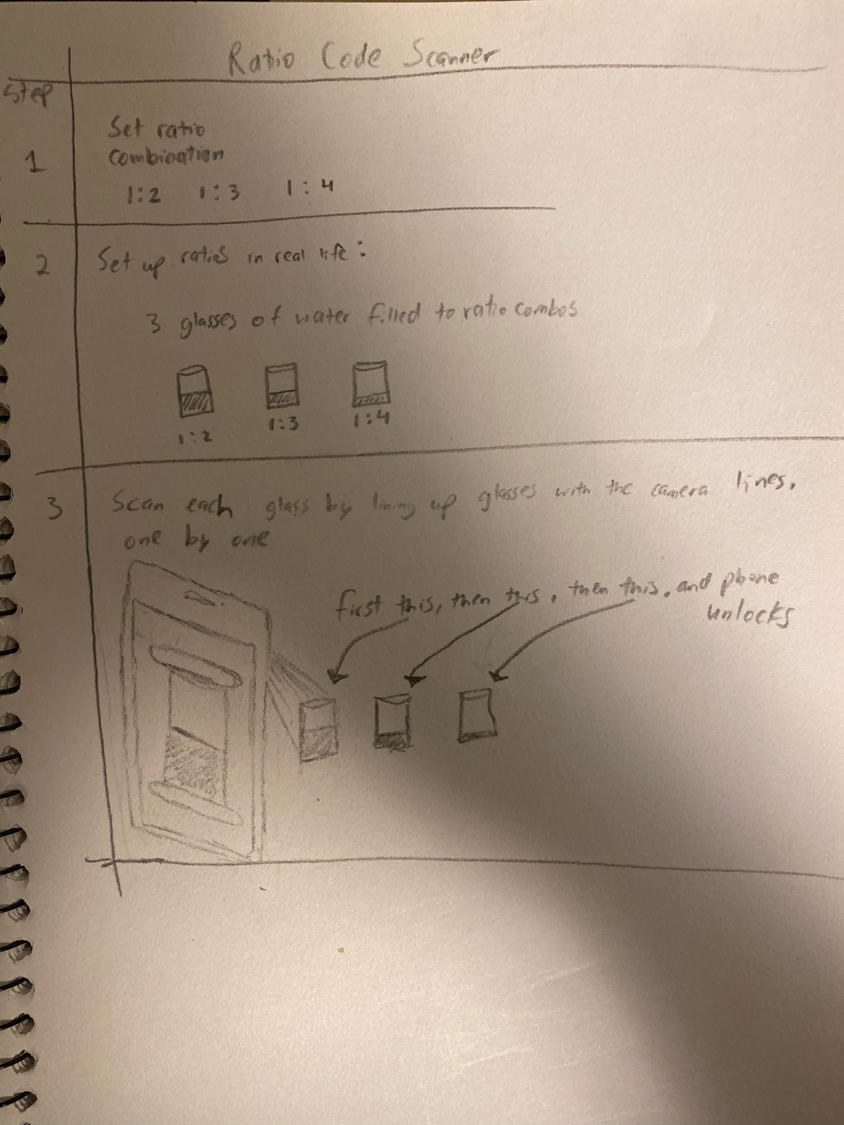 Ratio Code Scanner
Step
1
Set ratio
combination
1:2 1:3 1:4
2
Set up ratios in real life:
3 glasses of water filled to ratio combos
1:2 1:3 1:4
3
Scan each glass by lining up glasses with the camera lines,
one by one
first this, then this, then this, and phone
unlocks